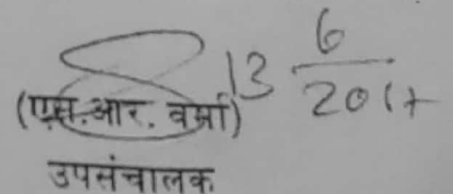 13 6/2017
(एस.आर. वर्मा)
उपसंचालक